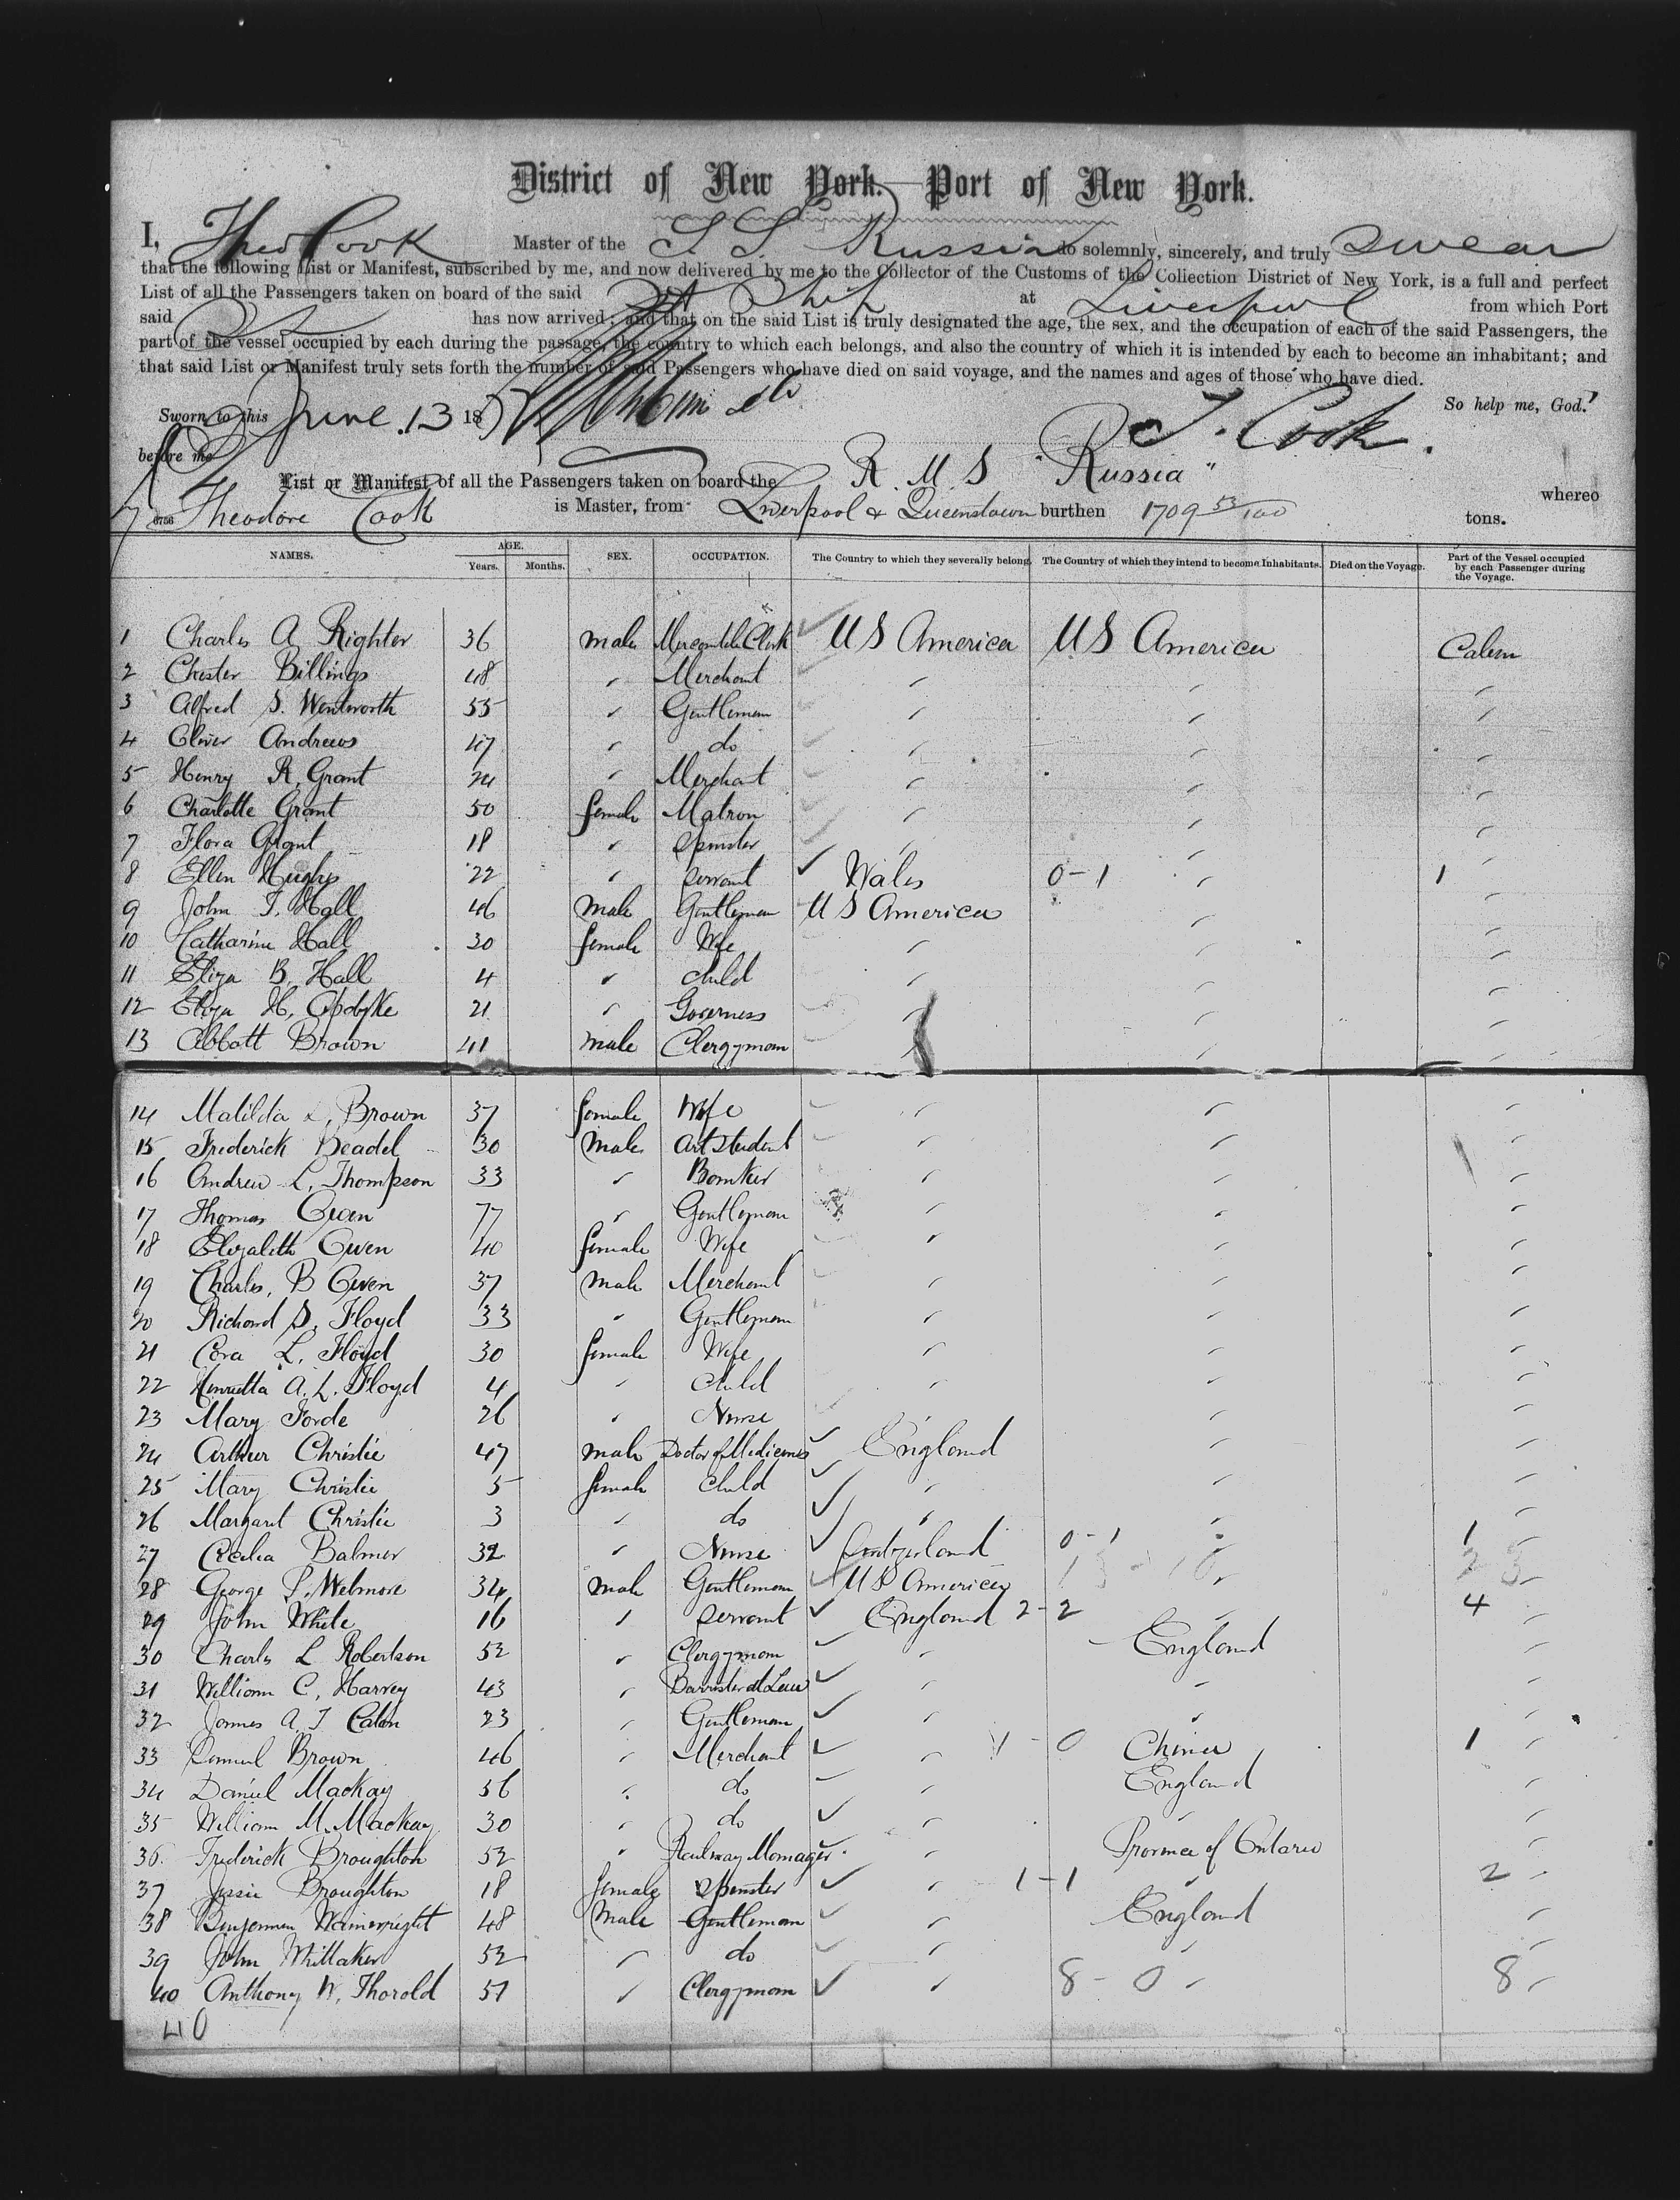 District of New York.—Port of New York.
I, Theo Cook Master of the S. S. Russia do solemnly, sincerely, and truly swear
that the following List or Manifest, subscribed by me, and now delivered by me to the Collector of the Customs of the Collection District of New York, is a full and perfect
List of all the Passengers taken on board of the said Ship at Liverpool from which Port
said has now arrived; and that on the said List is truly designated the age, the sex, and the occupation of each of the said Passengers, the
part of the vessel occupied by each during the passage, the country to which each belongs, and also the country of which it is intended by each to become an inhabitant; and
that said List or Manifest truly sets forth the number of said Passengers who have died on said voyage, and the names and ages of those who have died.
So help me, God.
Sworn to this June 13 187
T. Cook.
before me
List or Manifest of all the Passengers taken on board the R. M. S "Russia" whereo
6756 Theodore Cook is Master, from Liverpool & Queenstown burthen 1709 53/100 tons.
NAMES. AGE. SEX. OCCUPATION. The Country to which they severally belong. The Country of which they intend to become Inhabitants. Died on the Voyage. Part of the Vessel occupied by each Passenger during the Voyage.
Years. Months.
1 Charles A Righter 36 male Mercantile Clerk US America US America Cabin
2 Chester Billings 48 " Merchant " " "
3 Alfred S. Wentworth 55 " Gentleman " " "
4 Oliver Andrews 47 " do " " "
5 Henry R. Grant 24 " Merchant " " "
6 Charlotte Grant 50 female Matron " " "
7 Flora Grant 18 " Spinster " " "
8 Ellen Hughes 22 " servant Wales 0-1 " 1 "
9 John T. Hall 46 Male Gentleman US America " "
10 Catharine Hall 30 female Wife " " "
11 Eliza B. Hall 4 " child " " "
12 Eliza H. Opdyke 21 " Governess " " "
13 Abbott Brown 41 male Clergyman " " "
14 Matilda L. Brown 37 female Wife " " "
15 Frederick Beadel 30 Male Art Student " " "
16 Andrew L. Thompson 33 " Banker " " "
17 Thomas Owen 77 " Gentleman " " "
18 Elizabeth Owen 40 female Wife " " "
19 Charles. B Owen 37 Male Merchant " " "
20 Richard S. Floyd 33 " Gentleman " " "
21 Cora L. Floyd 30 female Wife " " "
22 Henrietta A. L. Floyd 4 " Child " " "
23 Mary Forde 26 " Nurse " " "
24 Arthur Christie 47 male Doctor of Medicines England " "
25 Mary Christie 5 female Child " " "
26 Margaret Christie 3 " do " " "
27 Cecilia Balmer 32 " Nurse Switzerland 0-1 " 1 "
28 George P. Wetmore 34 male Gentleman US America " 23 "
29 John White 16 " servant England 2-2 " 4 "
30 Charles L Robertson 52 " Clergyman " England "
31 William C. Harvey 43 " Barrister at Law " " "
32 James A. T. 23 " Gentleman " " "
33 Samuel Brown 46 " Merchant " 1-0 China 1 "
34 Daniel Mackay 56 " do " England "
35 William M. Mackay 30 " do " " "
36. Frederick Broughton 52 " Railway Manager " Province of Ontario "
37 Jessie Broughton 18 female Spinster " 1-1 " 2 "
38 Benjamin Wainewright 48 Male Gentleman " England "
39 John Whittaker 52 " do " " "
40 Anthony W. Thorold 51 " Clergyman " 8-0 " 8 "
40